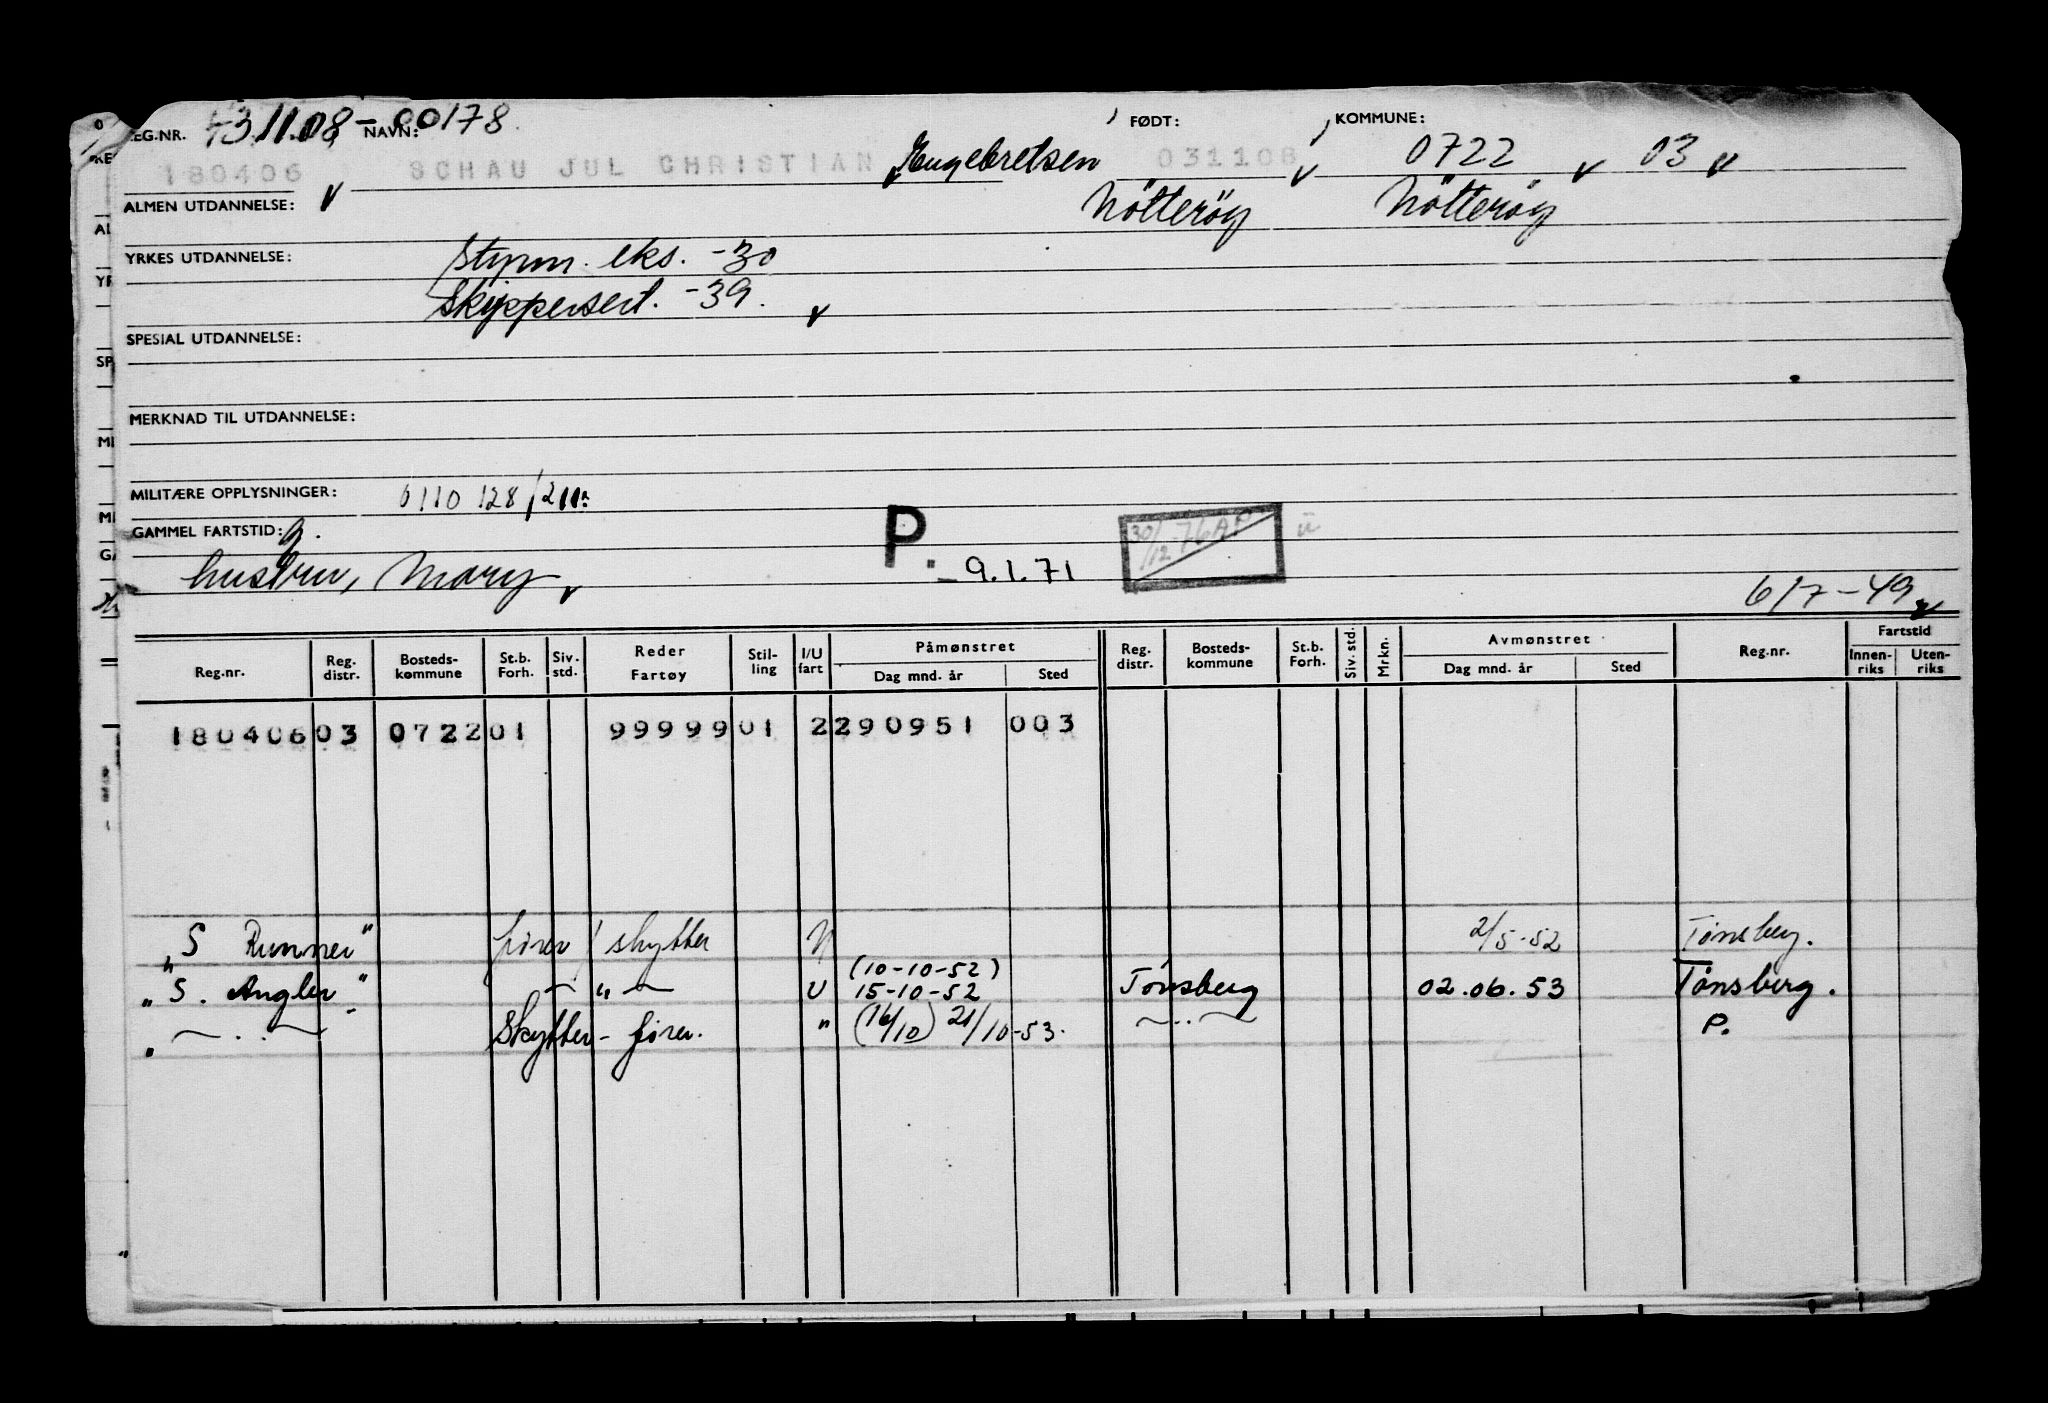 REG.NR. 03.11.08-00178 NAVN: FØDT: KOMMUNE:
180406 SCHAU JUL CHRISTIAN Engebretsen 031108 0722 03
ALMEN UTDANNELSE: Nötteröy Nötteröy
YRKES UTDANNELSE: Styrm. eks. -30
Skippersert. -39.
SPESIAL UTDANNELSE:
MERKNAD TIL UTDANNELSE:
MILITÆRE OPPLYSNINGER: 0110 128/211
GAMMEL FARTSTID: g. P. 30/12 76 AP
hustru, Mary - 9.1.71
6/7-49
Reg.nr. Reg. distr. Bosteds-kommune St.b. Forh. Siv. std. Reder Fartøy Stil-ling I/U fart Påmønstret Dag mnd. år Sted Reg. distr. Bosteds-kommune St.b. Forh. Siv. std. Mrkn. Avmønstret Dag mnd. år Sted Reg.nr. Fartstid Innen-riks Uten-riks
180406 03 0722 01 99999 01 2 290951 003
"S Runner" fører / skytter U 2/5-52 Tønsberg.
(10-10-52)
"S. Angler" — " — U 15-10-52 Tønsberg 02.06.53 Tønsberg.
" — .. — " Skytter - fører. " (16/10) 21/10-53. — .. — P.